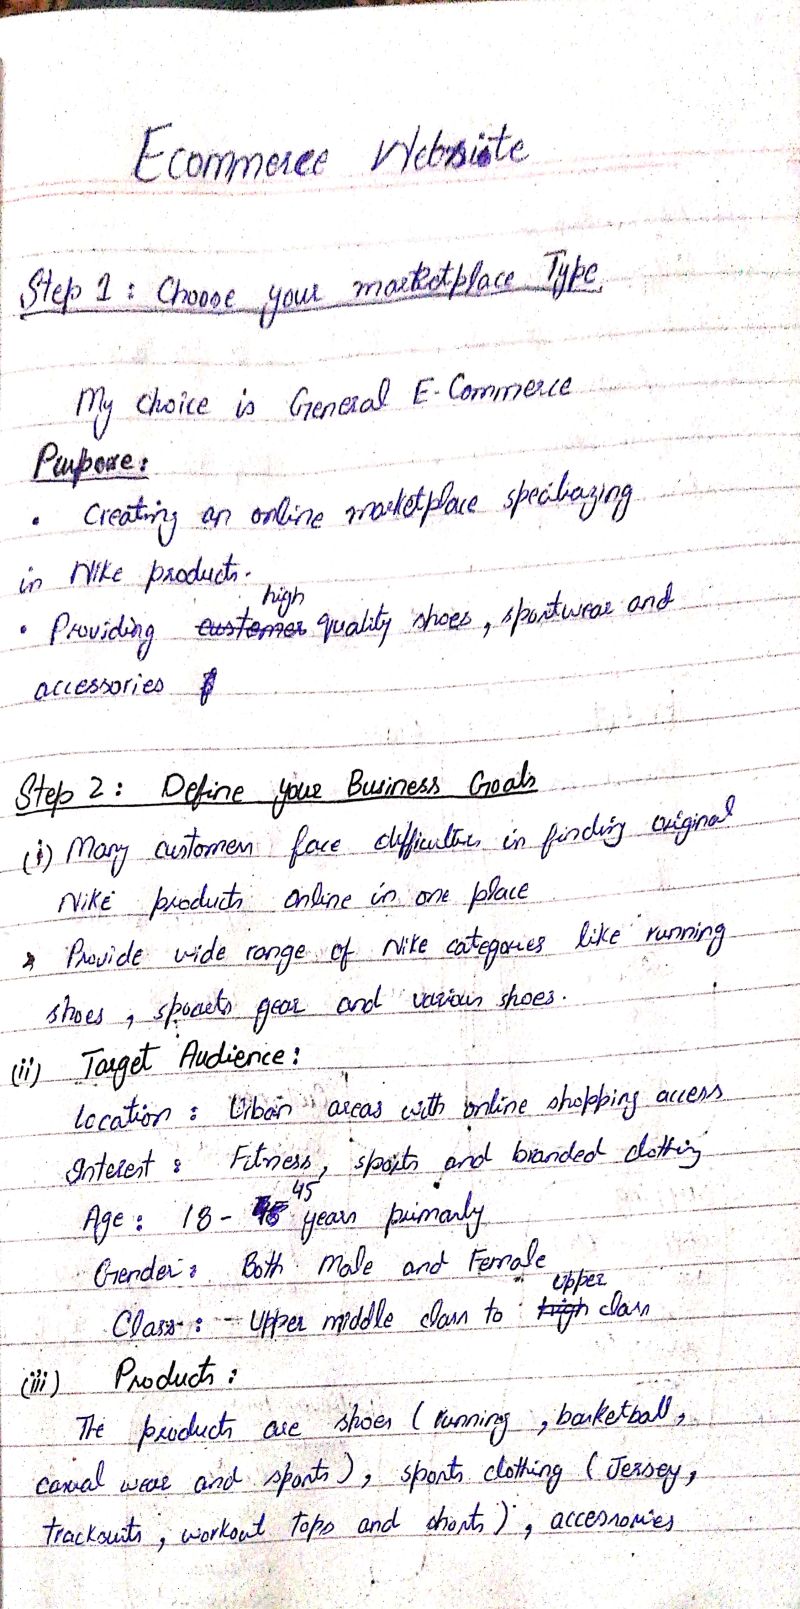 Ecommerce Website
Step 1 : Choose your marketplace Type
My choice is General E-Commerce
Purpose :
• Creating an online marketplace specialiazing
in Nike products.
• Providing customer high quality shoes, sportwear and
accessories
Step 2 : Define your Business Goals
(i) Many customers face difficulties in finding original
Nike products online in one place
Provide wide range of Nike categories like running
shoes, sports gear and various shoes.
(ii) Target Audience :
Location : Urban areas with online shopping access
Interest : Fitness, sports and branded clothing
Age : 18 - 45 years primarly
Gender : Both Male and Female
Class : - Upper middle class to high upper class
(iii) Products :
The products are shoes ( running , basketball,
casual wear and sports ), sports clothing ( Jersey,
tracksuits , workout tops and shorts ) , accessories